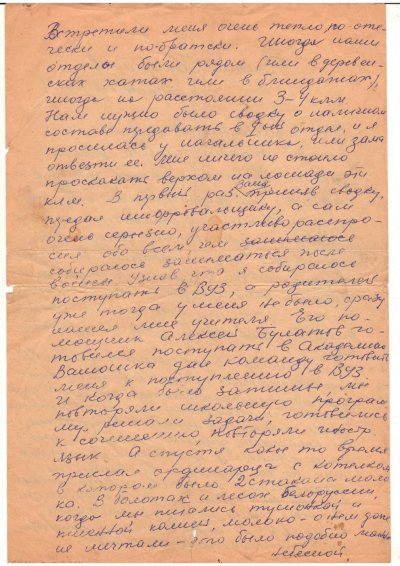 Встретили меня очень тепло, по-оте-
чески и по-братски. Иногда наши
отделы были рядом (или в деревен-
ских хатах или в блиндажах),
иногда на расстоянии 3-4 клм.
Нам нужно было сводку о наличном
составе передавать в отдел, и я
просилась у начальника, или зама
отвезти ее. Мне ничего не стоило
проскакать верхом на лошади эти
клм. В первый раз взяв сводку,
передал шифровальщику, а сам
очень серьезно, участливо расспро-
сил обо всем, чем занимаюсь
собираюсь заниматься после
войны. Узнав что я собираюсь
поступать в ВУЗ, а родителей
уже тогда у меня не было, сразу
нашел мне учителя. Его по-
мощник Алексей Булатов го-
товился поступать в Академию
Ваношка дал команду готовить
меня к поступлению в ВУЗ
И когда было затишье, мы
повторяли школьную програм
му, решали задачи, готовились
к сочинению, повторяли иностр
язык. А спустя какое то время
прислал ординарца с котелком
в котором было 2 стакана моло
ка. В болотах и лесах Белоруссии,
когда мы питались тушонкой и
пшенной кашей, молоко - о нем даже
не мечтали - это было подобно манне
небесной.